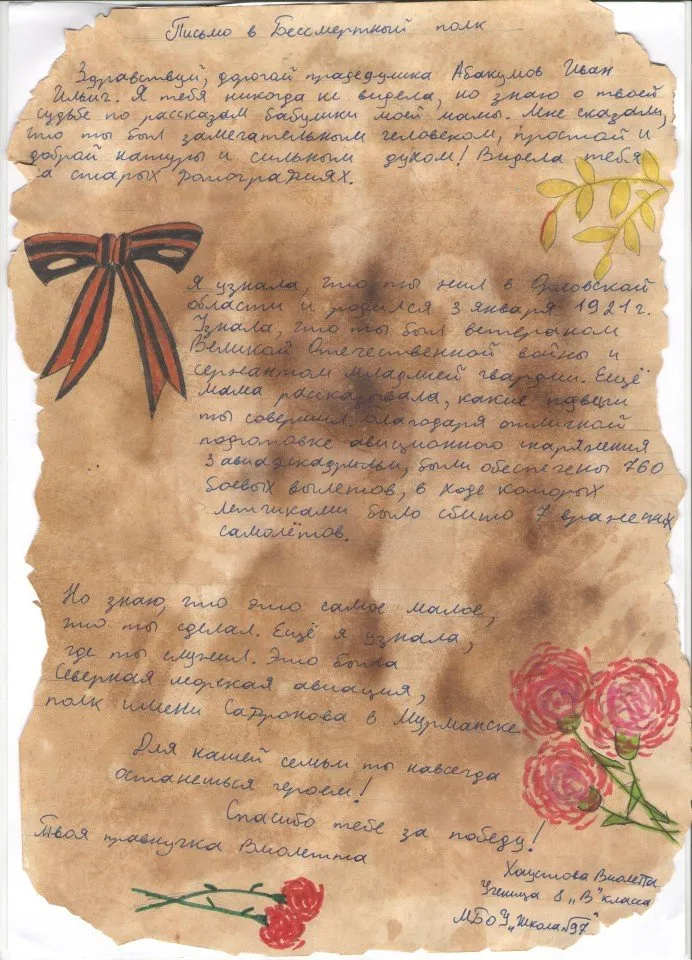 Письмо в Бессмертный полк
Здравствуй, дорогой прадедушка Абакумов Иван
Ильич. Я тебя никогда не видела, но знаю о твоей
судьбе по рассказам бабушки моей мамы. Мне сказали,
что ты был замечательным человеком, простой и
доброй натуры и сильным духом! Видела тебя
на старых фотографиях.
Я узнала, что ты жил в Орловской
области и родился 3 января 1921 г.
Узнала, что ты был ветераном
Великой Отечественной войны и
сержантом младшей гвардии. Ещё
мама рассказывала, какие подвиги
ты совершил, благодаря отличной
подготовке авиционного снаряжения
3 авиаэскадрильи, были обеспечены 760
боевых вылетов, в ходе которых
летчиками было сбито 7 вражеских
самолётов.
Но знаю, что это самое малое,
что ты сделал. Ещё я узнала,
где ты служил. Это была
Северная морская авиация,
полк имени Сафронова в Мурманске.
Для нашей семьи ты навсегда
останешься героем!
Спасибо тебе за победу!
Твоя правнучка Виолетта
Хаустова Виолетта
Ученица 8 „В" класса
МБОУ „Школа №97"